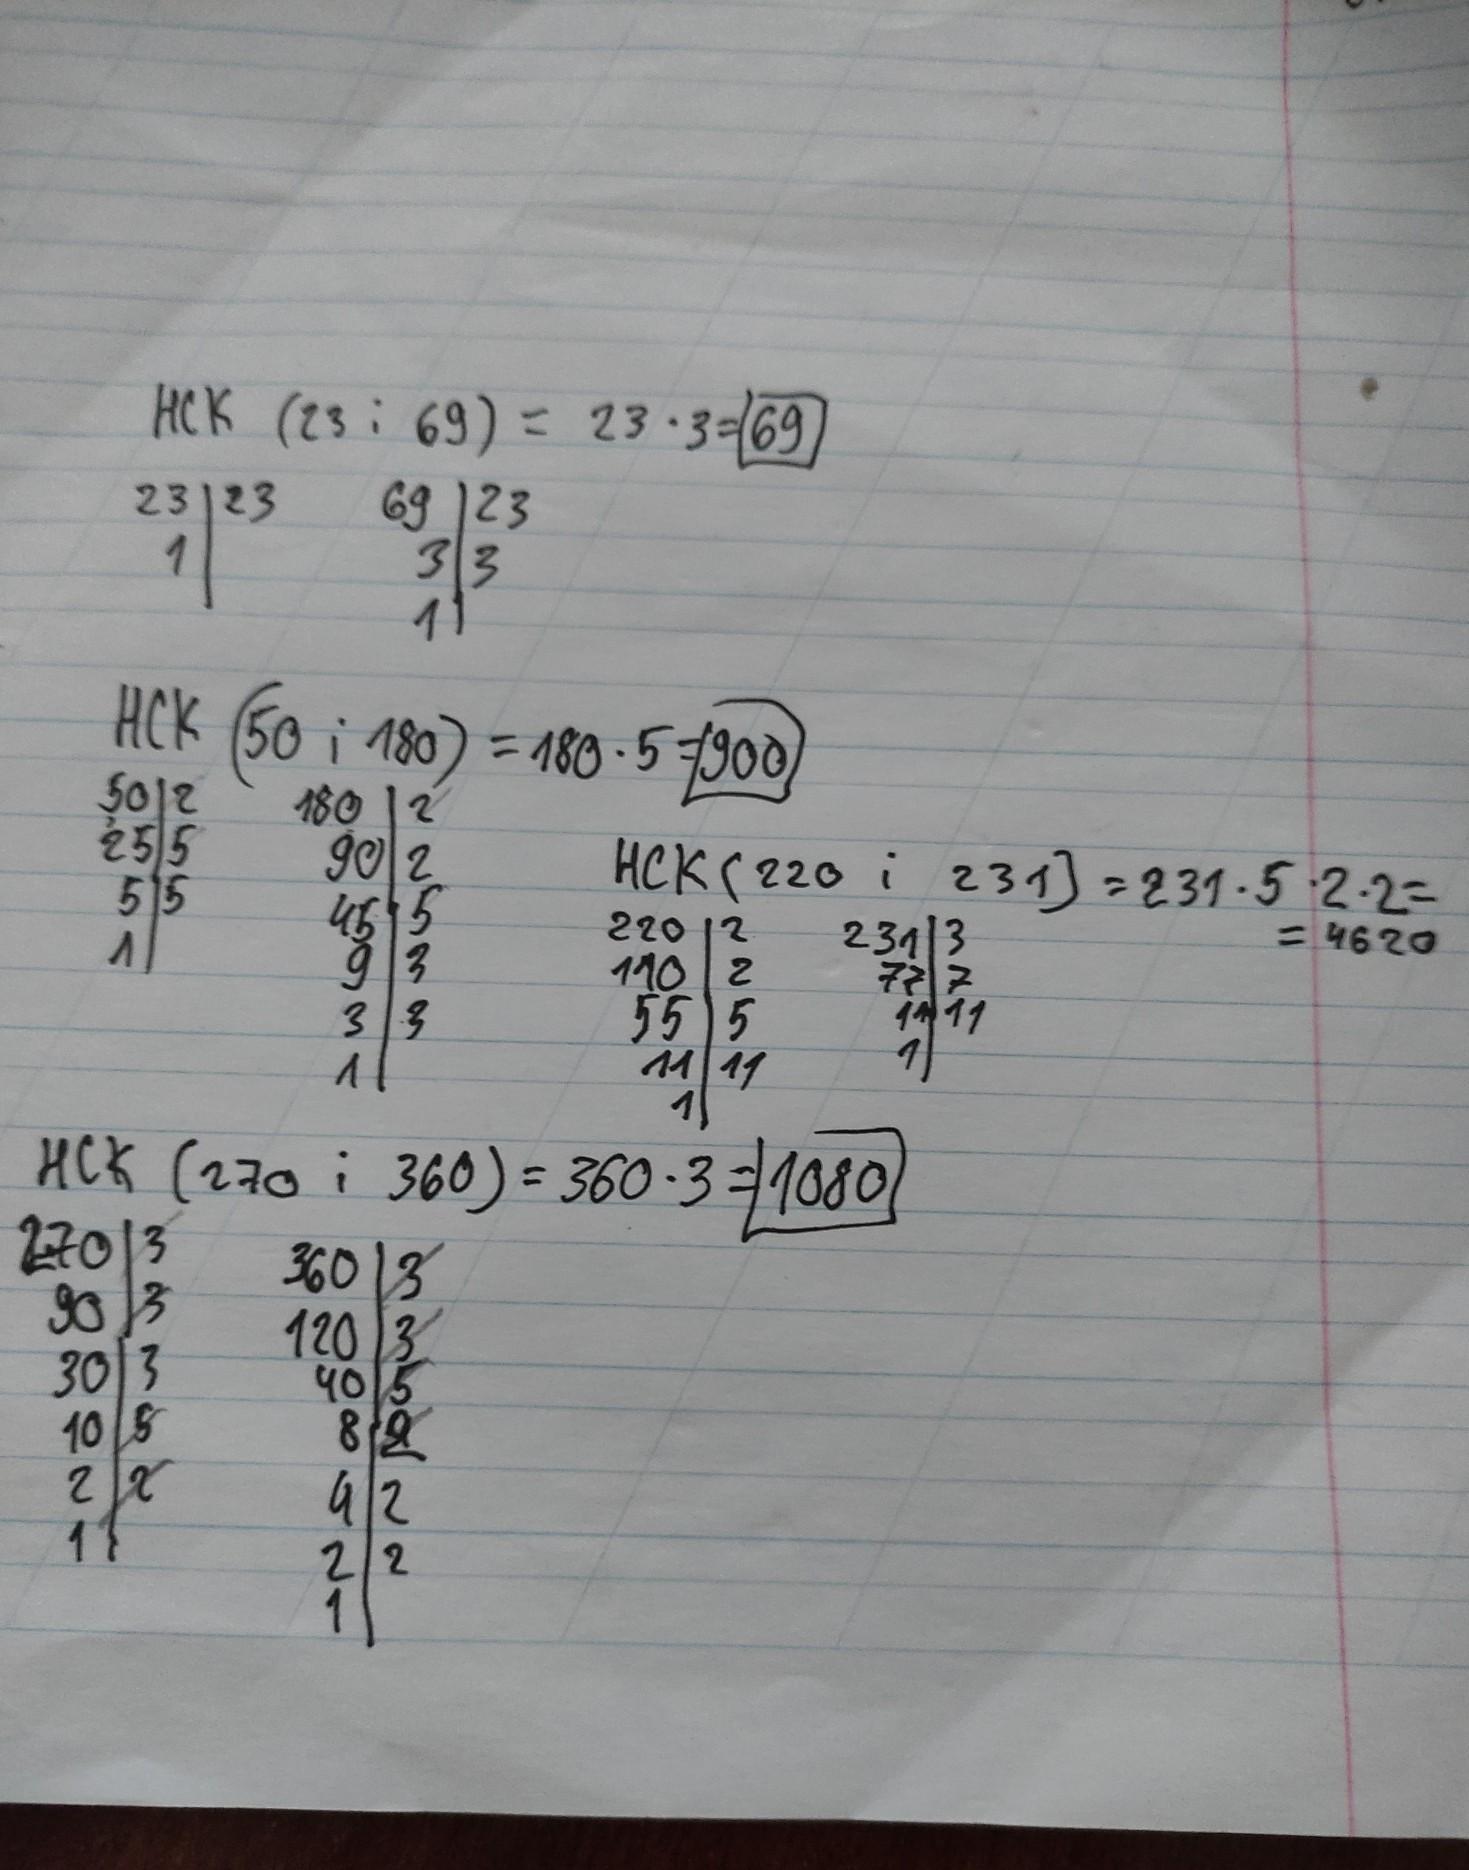 НСК (23 і 69) = 23 · 3 = 69
23 | 23 69 | 23
1 | 3 | 3
1 |
НСК (50 і 180) = 180 · 5 = 900
50 | 2 180 | 2
25 | 5 90 | 2
5 | 5 45 | 5
1 | 9 | 3
3 | 3
1 |
НСК (220 і 231) = 231 · 5 · 2 · 2 =
= 4620
220 | 2 231 | 3
110 | 2 77 | 7
55 | 5 11 | 11
11 | 11 1 |
1 |
НСК (270 і 360) = 360 · 3 = 1080
270 | 3 360 | 3
90 | 3 120 | 3
30 | 3 40 | 5
10 | 5 8 | 2
2 | 2 4 | 2
1 | 2 | 2
1 |